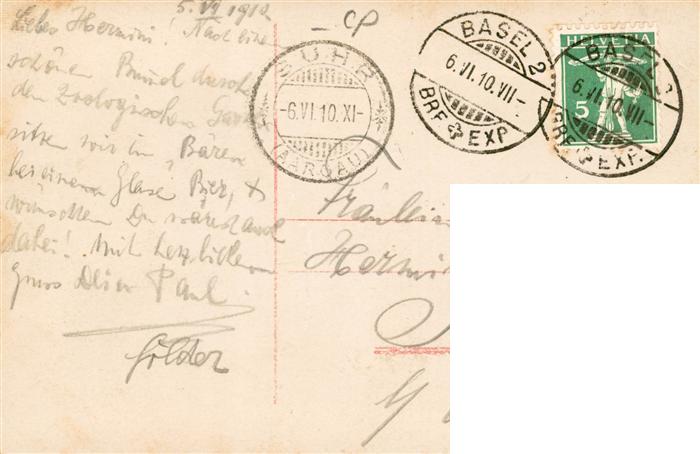 5. VI 1910
Liebes Hermini! Nach eine
schönen Bumel durch
den Zoologischen Gart
sitzen wir im "Bären
bei einem Glase Bier, &
wünschten Du wärest auch
dabei! Mit herzlichem
Gruss Dein Paul.
CP
SUHR
6.VI.10.XI-
(AARGAU)
BASEL 2
6.VI.10.VIII-
BRF EXP.
HELVETIA
5
BASEL 2
6.VI.10.VIII-
BRF EXP.
Fräulein
Hermi